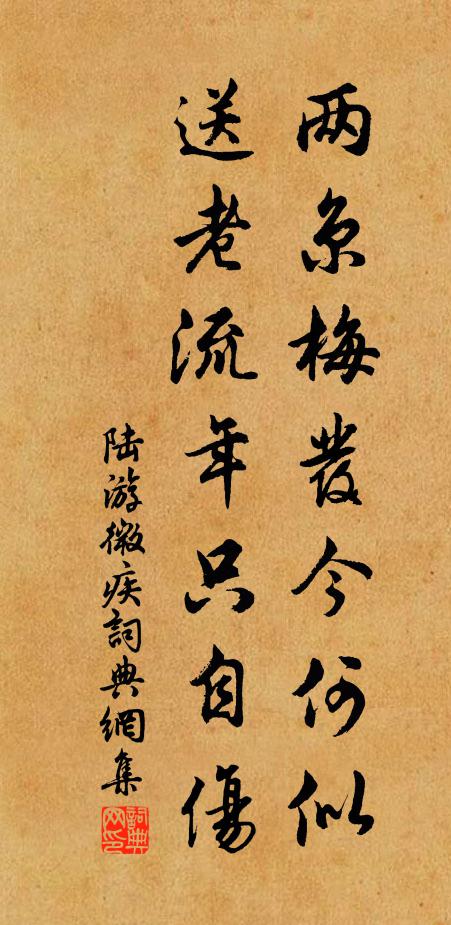 两京梅發今何似
送老流年只自傷
陆游微疾詞典網集
詞典網印